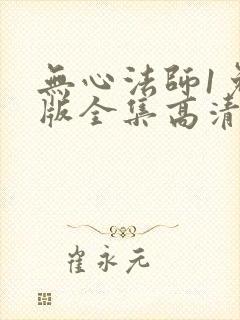 無心法師1免
版全集高清
崔永元